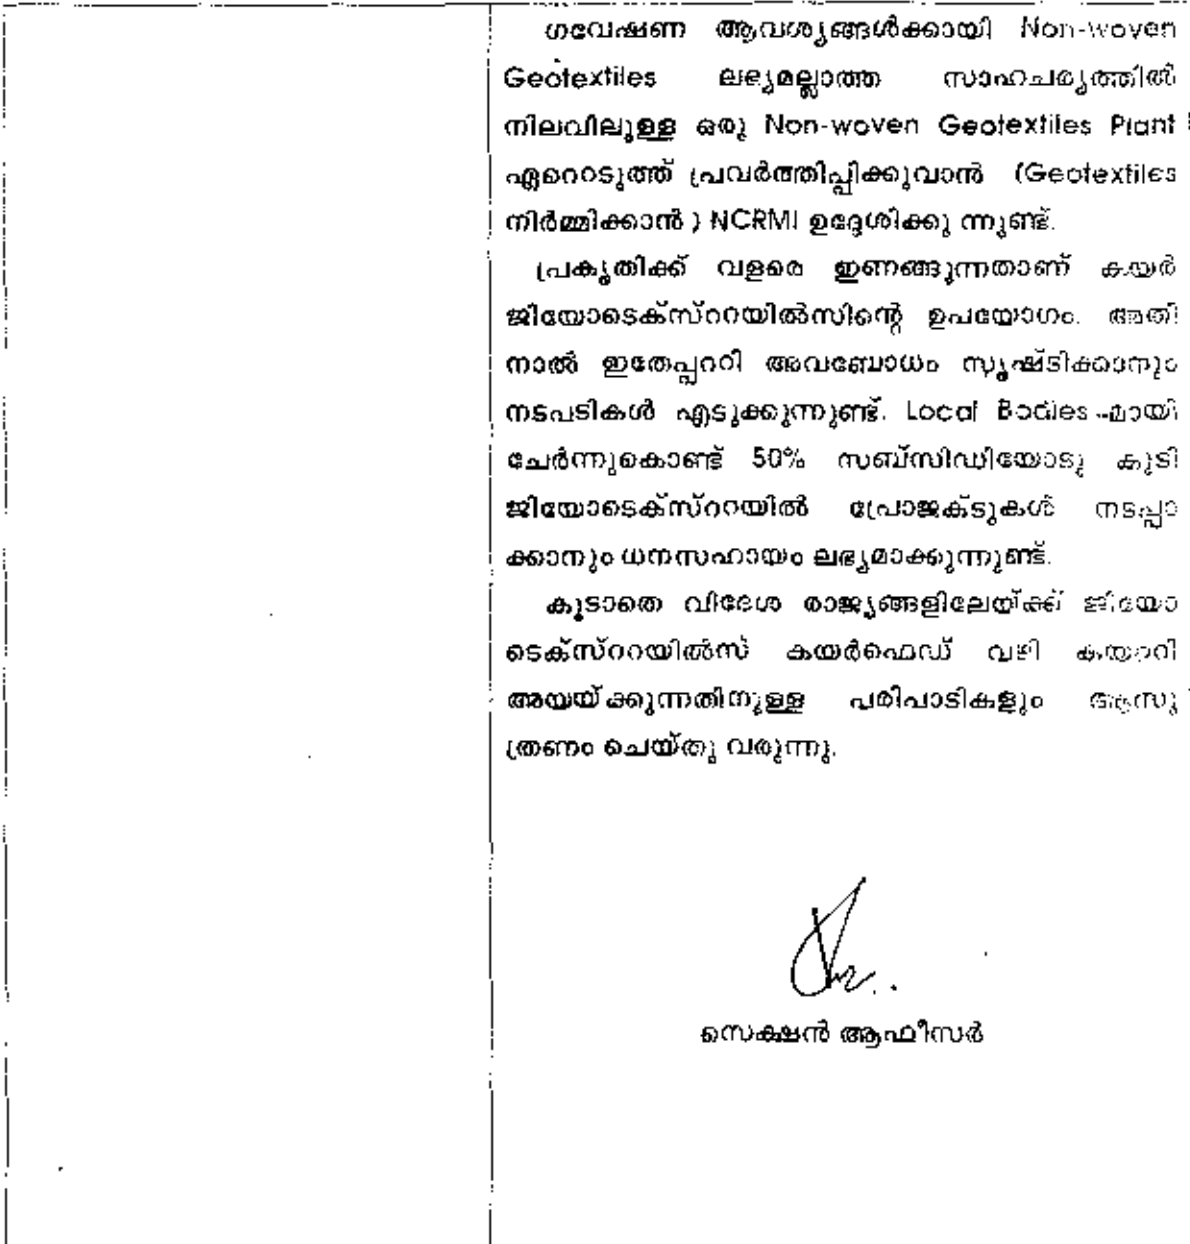 ഗവേഷണ ആവശ്യങ്ങൾക്കായി Non-woven
Geotextiles ലഭ്യമല്ലാത്ത സാഹചര്യത്തിൽ
നിലവിലുള്ള ഒരു Non-woven Geotextiles Plant
ഏറെറടുത്ത് പ്രവർത്തിപ്പിക്കുവാൻ (Geotextiles
നിർമ്മിക്കാൻ ) NCRMI ഉദ്ദേശിക്കു ന്നുണ്ട്.
പ്രകൃതിക്ക് വളരെ ഇണങ്ങുന്നതാണ് കയർ
ജിയോടെക്സ്ററയിൽസിന്റെ ഉപയോഗം. അതി
നാൽ ഇതേപ്പററി അവബോധം സൃഷ്ടിക്കാനും
നടപടികൾ എടുക്കുന്നുണ്ട്. Local Bodies -മായി
ചേർന്നുകൊണ്ട് 50% സബ്സിഡിയോടു കൂടി
ജിയോടെക്സ്ററയിൽ പ്രോജക്ടുകൾ നടപ്പാ
ക്കാനും ധനസഹായം ലഭ്യമാക്കുന്നുണ്ട്.
കൂടാതെ വിദേശ രാജ്യങ്ങളിലേയ്ക്ക് ജിയോ
ടെക്സ്ററയിൽസ് കയർഫെഡ് വഴി കയററി
അയയ്ക്കുന്നതിനുള്ള പരിപാടികളും ആസൂ
ത്രണം ചെയ്തു വരുന്നു.
സെക്ഷൻ ആഫീസർ